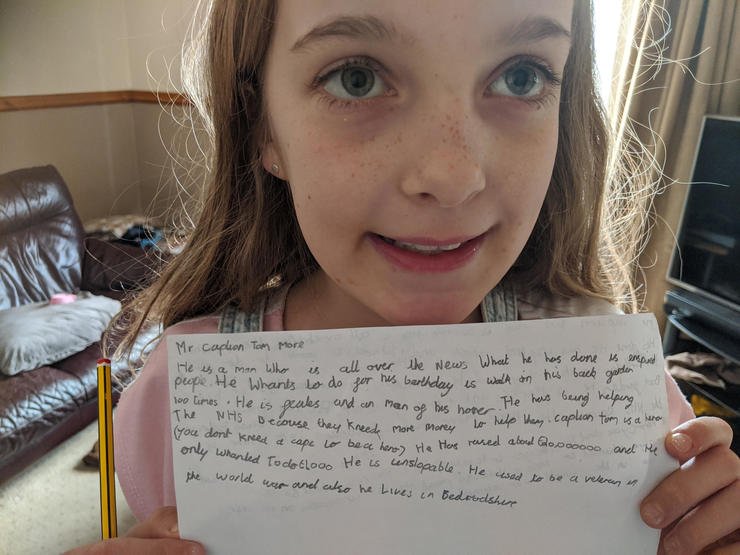 Mr caption Tom More
He is a man who is all over the News What he has done is enspired
people. He whants to do for his berthday is walk on his back garden
100 times. He is geales and an man of his honer. He has being helping
The NHS Because they kneed more money to help them. caption Tom is a hero
(you dont kneed a cape to be a hero) He Has raised about and He
only whanted to do £1,000 He is unstopable. He used to be a veteran in
the world war and also he Lives in Bedfordshire